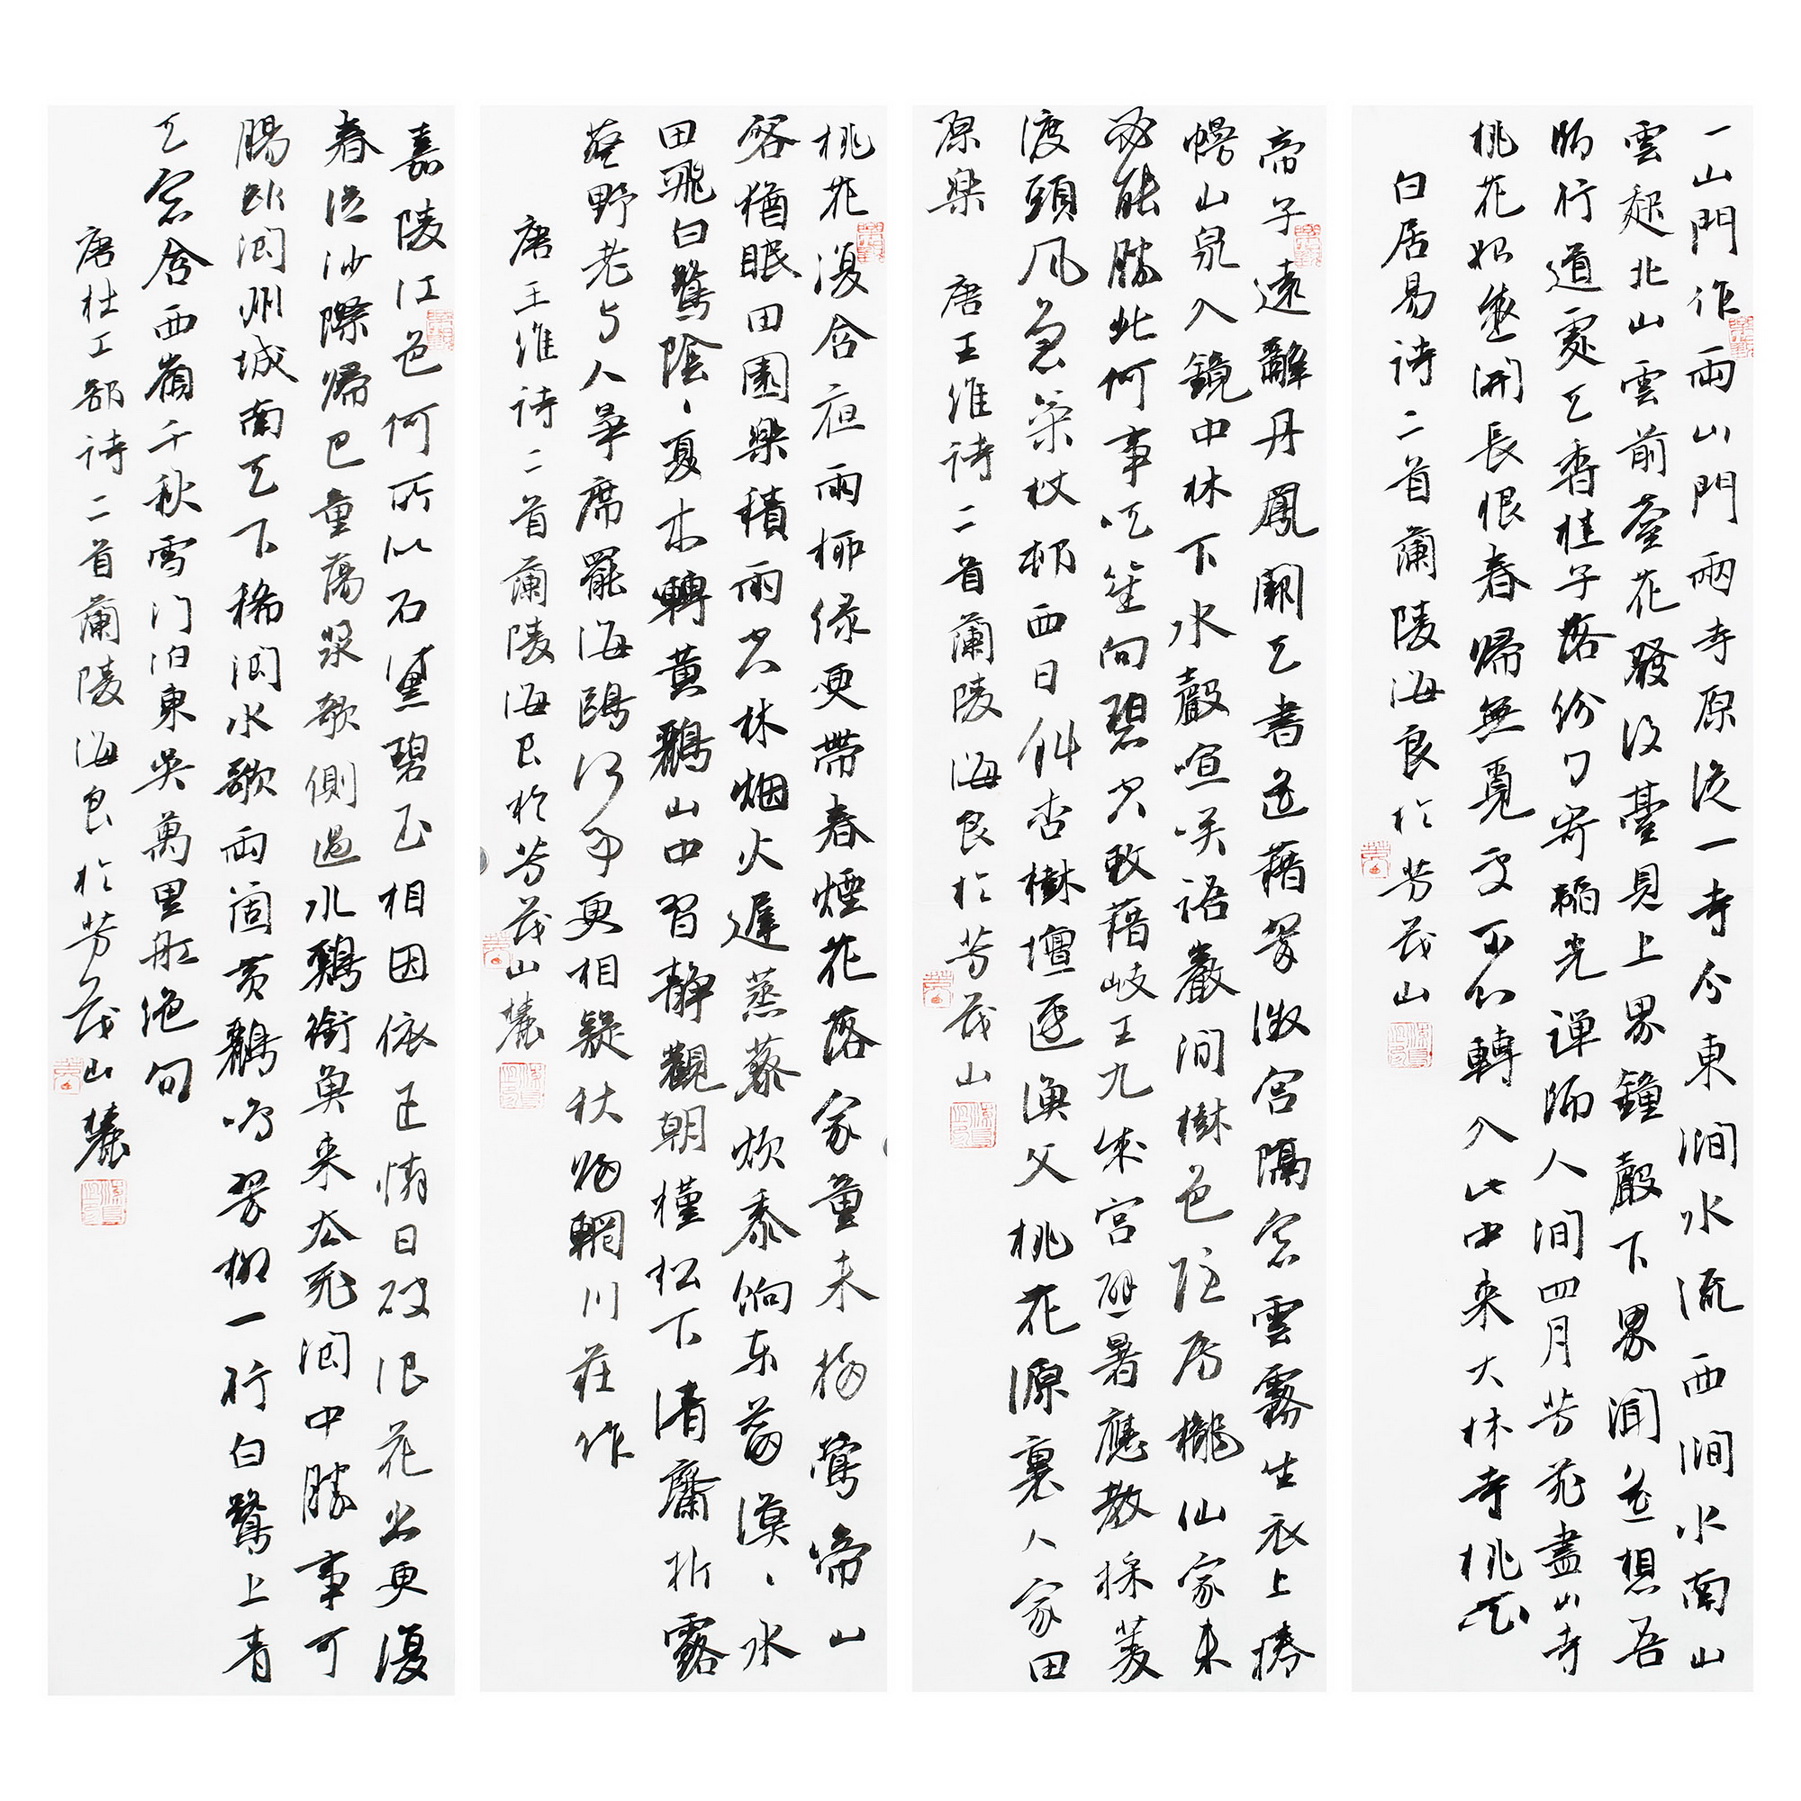 一山門作兩山門兩寺原從一寺分東澗水流西澗水南山
雲起北山雲前臺花發後臺見上界鐘聲下界聞遙想吾
師行道處天香桂子落紛紛寄韜光禪師人間四月芳菲盡山寺
桃花始盛開長恨春歸無覓處不知轉入此中来大林寺桃花
白居易詩二首蘭陵海良於芳茂山
帝子遠辭丹鳳闕天書遙借翠微宮隔窗雲霧生衣上捲
幔山泉入鏡中林下水聲喧笑語巖間樹色隱房櫳仙家未
必能勝此何事吹笙向碧空敕借岐王九成宮避暑應教採菱
渡頭風急策杖村西日斜杏樹壇邊漁父桃花源裏人家田
原樂 唐王維詩二首蘭陵海良於芳茂山
桃花復含宿雨柳綠更帶春煙花落家童未掃鶯啼山
客猶眠田園樂積雨空林烟火遲蒸藜炊黍餉东菑漠、水
田飛白鷺陰、夏木轉黃鸝山中習靜觀朝槿松下清齋折露
葵野老与人爭席罷海鷗何事更相疑秋歸輞川莊作
唐王維詩二首蘭陵海良於芳茂山麓
嘉陵江色何所似石黛碧玉相因依正憐日破浪花出更復
春從沙際歸巴童蕩槳欹側過水雞銜魚来去飛閬中勝事可
腸斷閬州城南天下稀閬水歌兩個黄鸝鳴翠柳一行白鷺上青
天窗含西嶺千秋雪门泊東吳萬里船绝句
唐杜工部詩二首蘭陵海良於芳茂山麓